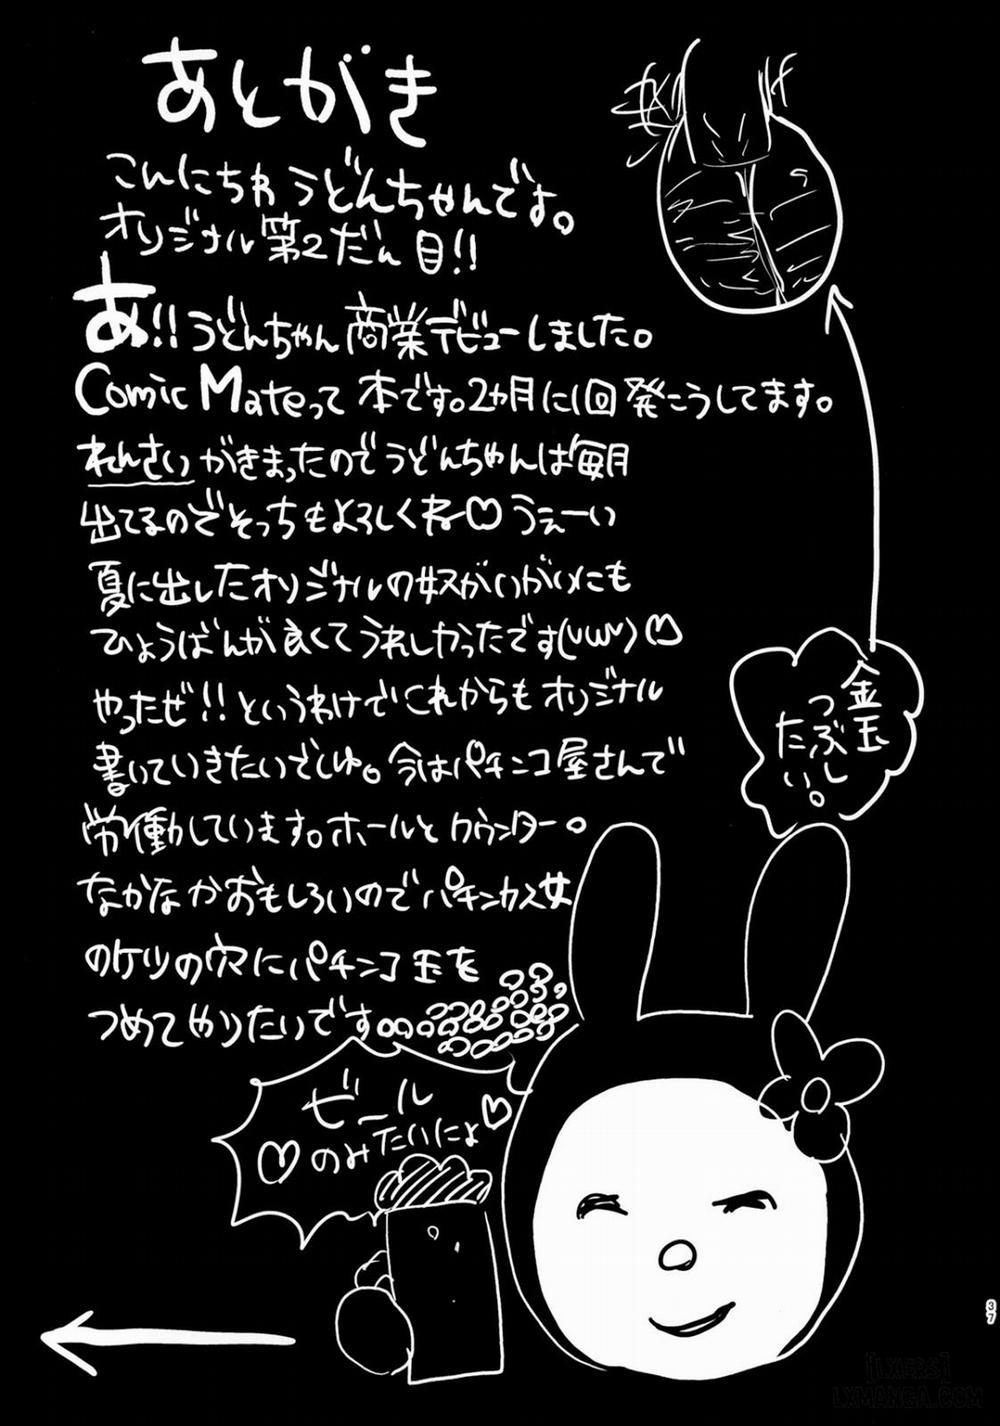 あとがき
こんにちわ うどんちゃんです。
オリジナル 第2だん目!!
あ!! うどんちゃん商業デビューしました。
Comic Mateって本です。2ヵ月に1回発こうしてます。
れんさいがきまったのでうどんちゃんは毎月
出てるのでそっちもよろしくね♡うぇーい
夏に出したオリジナルの奴がいがいにも
ひょうばんが良くてうれしかったです(UωU)♡
やったぜ!!というわけでこれからもオリジナル
書いていきたいでしゅ。今はパチンコ屋さんで
労働しています。ホールとカウンター。
なかなかおもしろいのでパチンカス女
のケツの穴にパチンコ玉を
つめてやりたいです
金玉
つぶし
たい。
ビール
♡のみたいにょ♡
37
[LXERS]
LXMANGA.COM